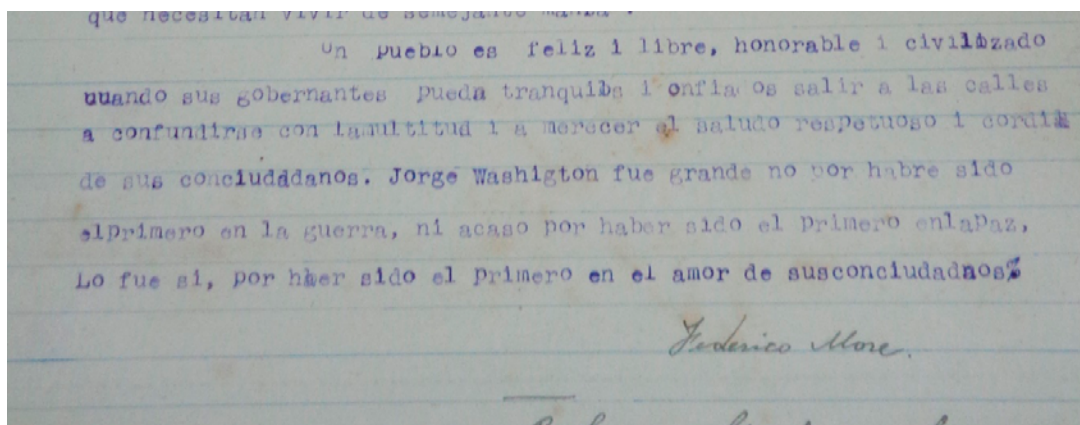 que necesitan vivir de semejante
Un pueblo es feliz i libre, honorable i civilizado
cuando sus gobernantes pueda tranquilos i onfia os salir a las calles
a confundirse con lamultitud i a merecer el saludo respetuoso i cordial
de sus conciudddanos. Jorge Washigton fue grande no por habre sido
elprimero en la guerra, ni acaso por haber sido el primero enlaPaz,
Lo fue si, por haer sido el primero en el amor de susconciudadnos%
Federico More.